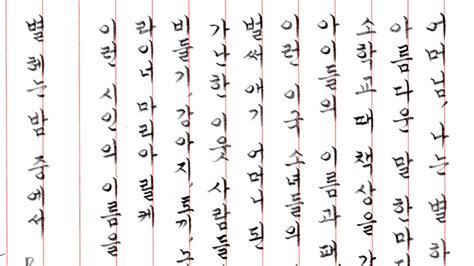 어머님, 나는 별 하
아름다운 말 한마
소학교 때 책상을
아이들의 이름과 패
이런 이국 소녀들의
벌써 애기 어머니 된
가난한 이웃 사람들
비둘기, 강아지, 토끼, 노
라이너 마리아 릴케
이런 시인의 이름을
별 헤는 밤 중에서